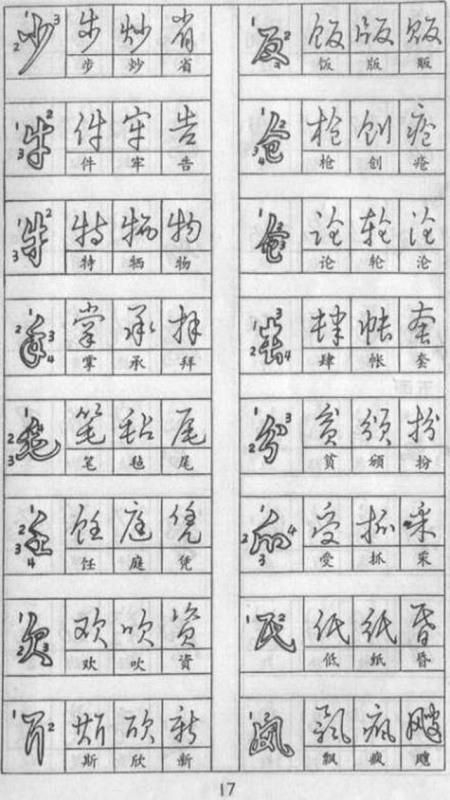 少 步 炒 省
步 炒 省
牛 件 牢 告
件 牢 告
牜 特 牺 物
特 牺 物
手 掌 承 拜
掌 承 拜
毛 笔 毡 尾
笔 毡 尾
壬 饪 庭 凭
饪 庭 凭
欠 欢 吹 资
欢 吹 资
斤 斯 欣 新
斯 欣 新
反 饭 版 贩
饭 版 贩
仓 枪 创 疮
枪 创 疮
仑 论 轮 沦
论 轮 沦
长 肆 帐 套
肆 帐 套
分 贫 颁 扮
贫 颁 扮
爪 受 抓 采
受 抓 采
氏 低 纸 昏
低 纸 昏
风 飘 疯 飕
飘 疯 飕
17